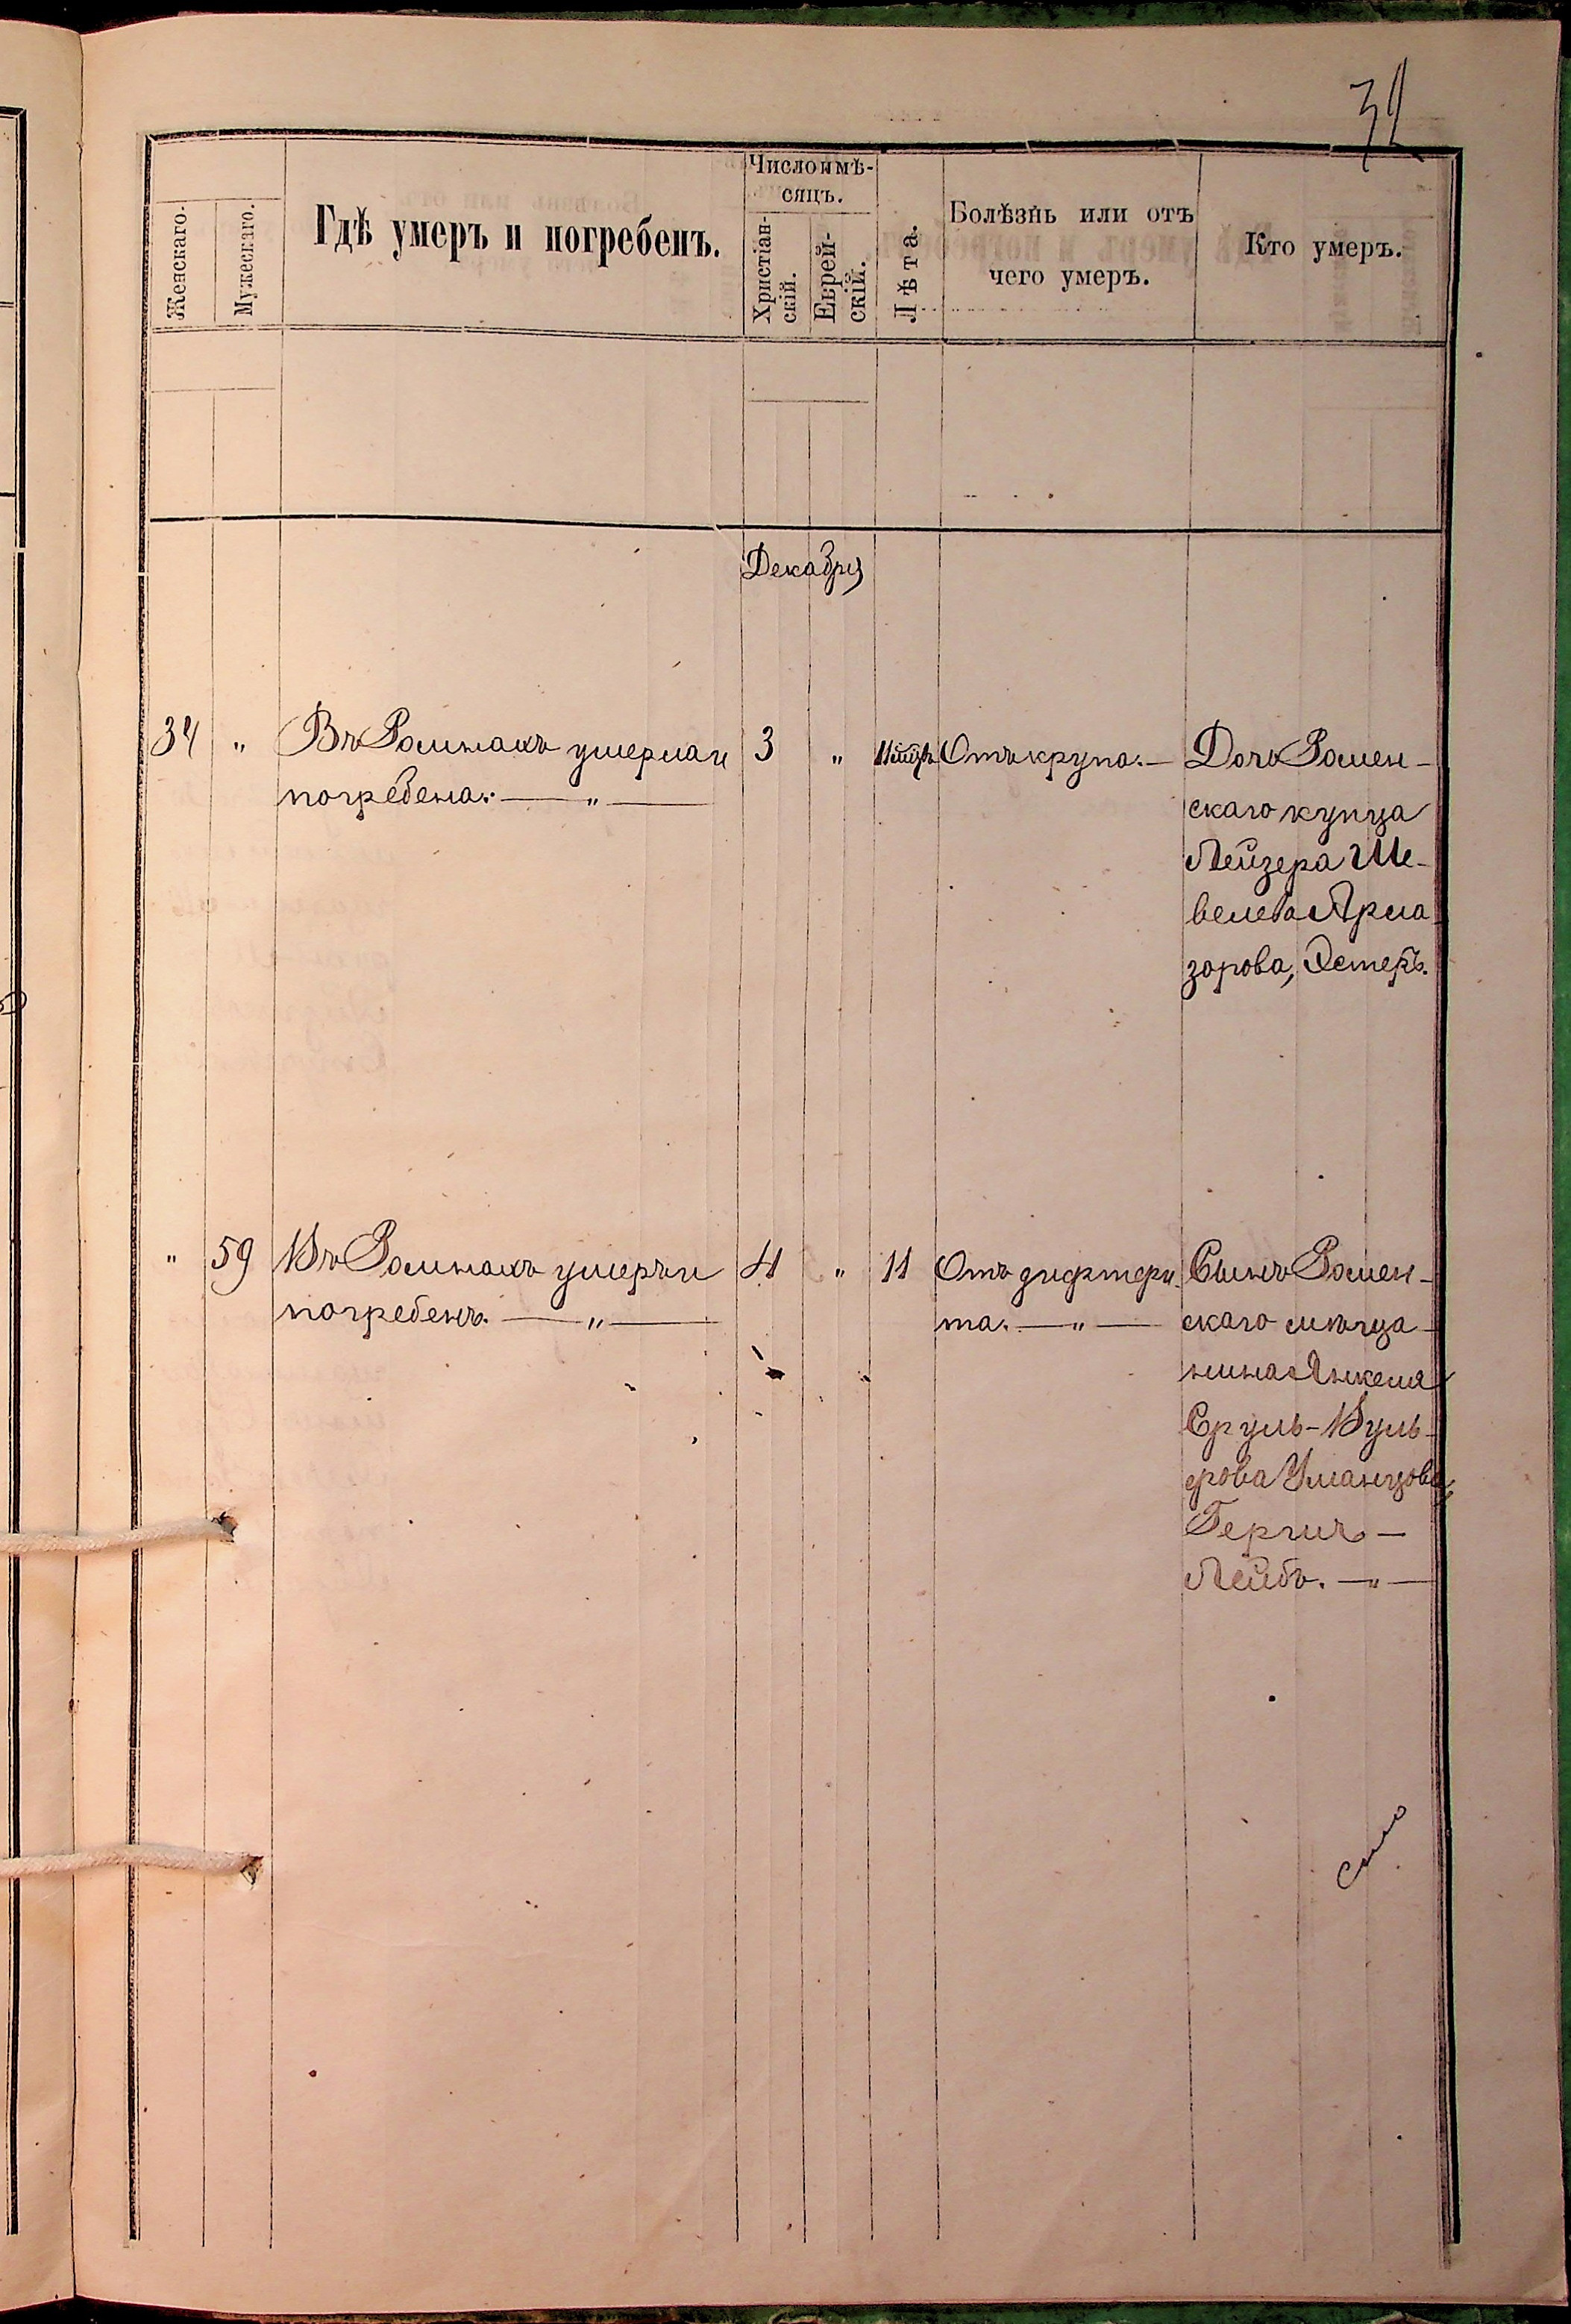 32
Женскаго.
Мужескаго.
Гдѣ умеръ и погребенъ.
Число и мѣ-
сяцъ.
Христіан-
скій.
Еврей-
скій.
Лѣта.
Болѣзнь или отъ
чего умеръ.
Кто умеръ.
Декабря
34 " Въ Ромнахъ умерла и 3 " 11 мѣс. Отъ крупа.— Дочь Ромен-
погребена. — " —
скаго купца
Лейзера Ше-
велева Арма
зорова, Эстеръ.
" 59 Въ Ромнахъ умеръ и 4 " 11 Отъ дифтери- Сынъ Ромен-
погребенъ. — " — та. — " — скаго мѣща-
нина Янкеля
Сруль-Вуль-
фова Уманцова,
Гершъ —
Лейбъ. — " —